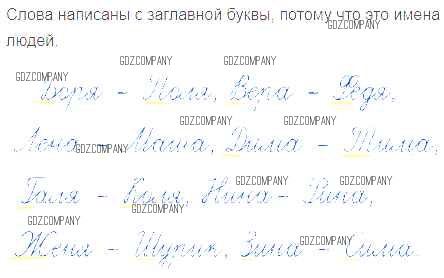 Слова написаны с заглавной буквы, потому что это имена
GDZCOMPANY
людей.
GDZCOMPANY
GDZCOMPANY GDZCOMPANY
Боря – Поля, Вера – Федя,
GDZCOMPANY GDZCOMPANY
Лена – Маша, Дима – Тима,
GDZCOMPANY
GDZCOMPANY GDZCOMPANY
Галя – Коля, Нина – Рина,
GDZCOMPANY
GDZCOMPANY
Женя – Шурик, Зина – Сима.
GDZCOMPANY